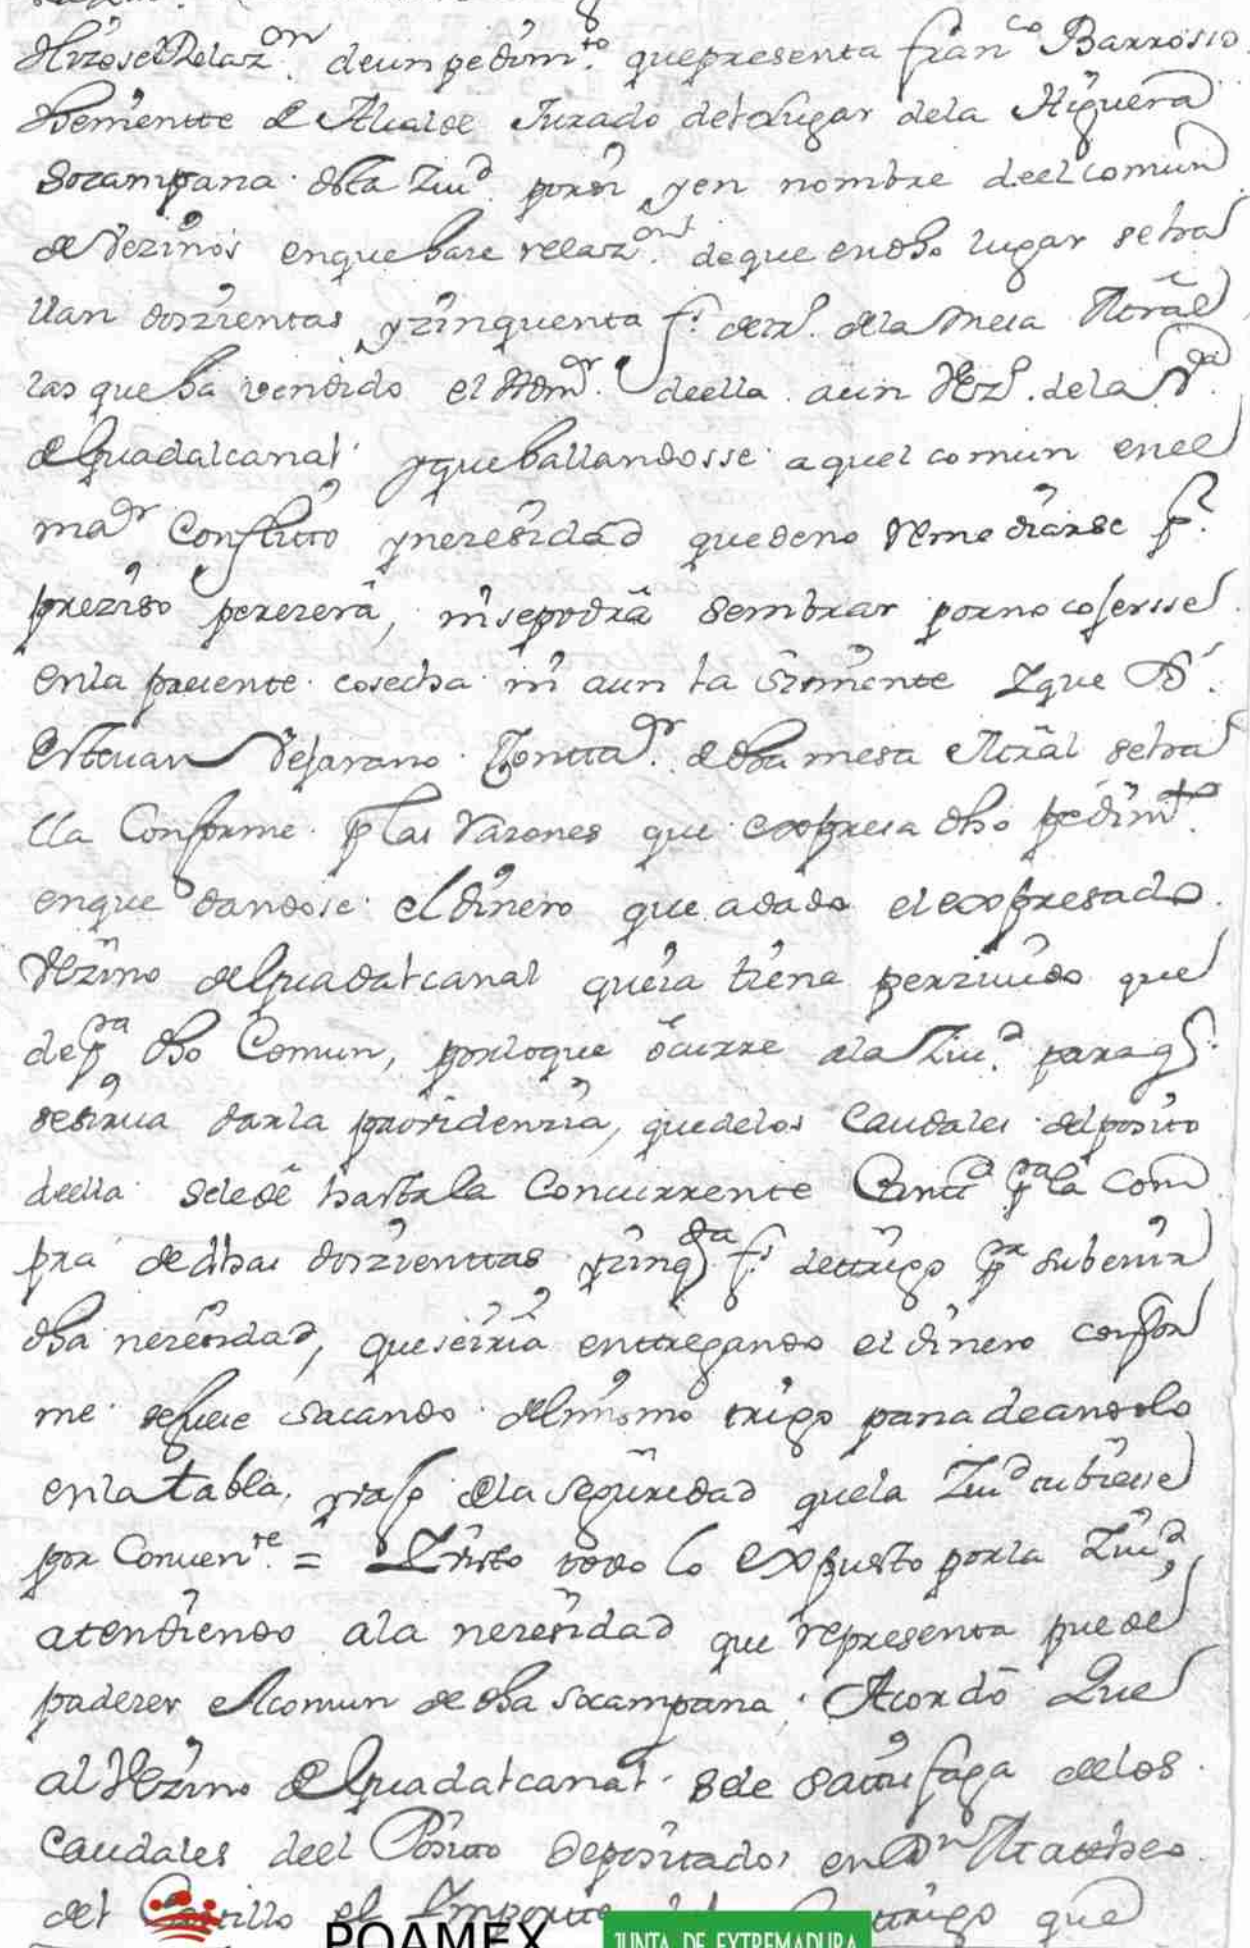 Hizose Relaz.on de un pedim.to que presenta fran.co Barroso
themientte de Alcalde Jurado del lugar de la Higuera
Socampana dsta Ziu.d por si y en nombre de el comun
de Vezinos en que haze relaz.on de que en dho lugar se ha
llan doszientas y zinquenta f.s de tr.o de la Mesa Mrãl
las que ha vendido el Adm.or de ella a un Vez.o de la V.a
de Guadalcanal y que hallandosse aquel comun en el
ma.or Conflitto y nezesidad que de no Remediarse p.r
preziso perezerà, ni se podrà sembrar por no cojersse
en la presente cosecha ni aun la simiente Y que D.
Esteuan Vejarano Contta.or de dha mesa Mrãl se ha
lla Conforme p.r las Razones que expresa dho pedim.to
en que dandose el dinero que a dado el expresado
Vezino de Guadalcanal que ia tiene perziuido quede
p.a dho Comun, por lo que òcurre a la Ziu.d para q.
se sirua dar la prouidenzia, que de los Caudales del posito
de ella se le dè hasta la Concurrente Canti.d p.a la Com
pra de dhas doszienttas y zinq.ta f.s de ttrigo p.a subenir
dha nezesidad, que se irià enttregando el dinero confor
me se fuese sacando del mismo trigo panadeandolo
en la tabla, y vajo de la seguridad que la Ziu.d tubiesse
por Conuen.te = Y Visto todo lo expuesto por la Ziu.d
atendiendo a la nezesidad que representa puede
padezer el comun de dha socampana; Acordò Que
al Vezino de Guadalcanal se le sattisfaga de los
Caudales de el Posito depositados en D.n Matheo
del Castillo el Importte ttrigo que
POAMEX
JUNTA DE EXTREMADURA